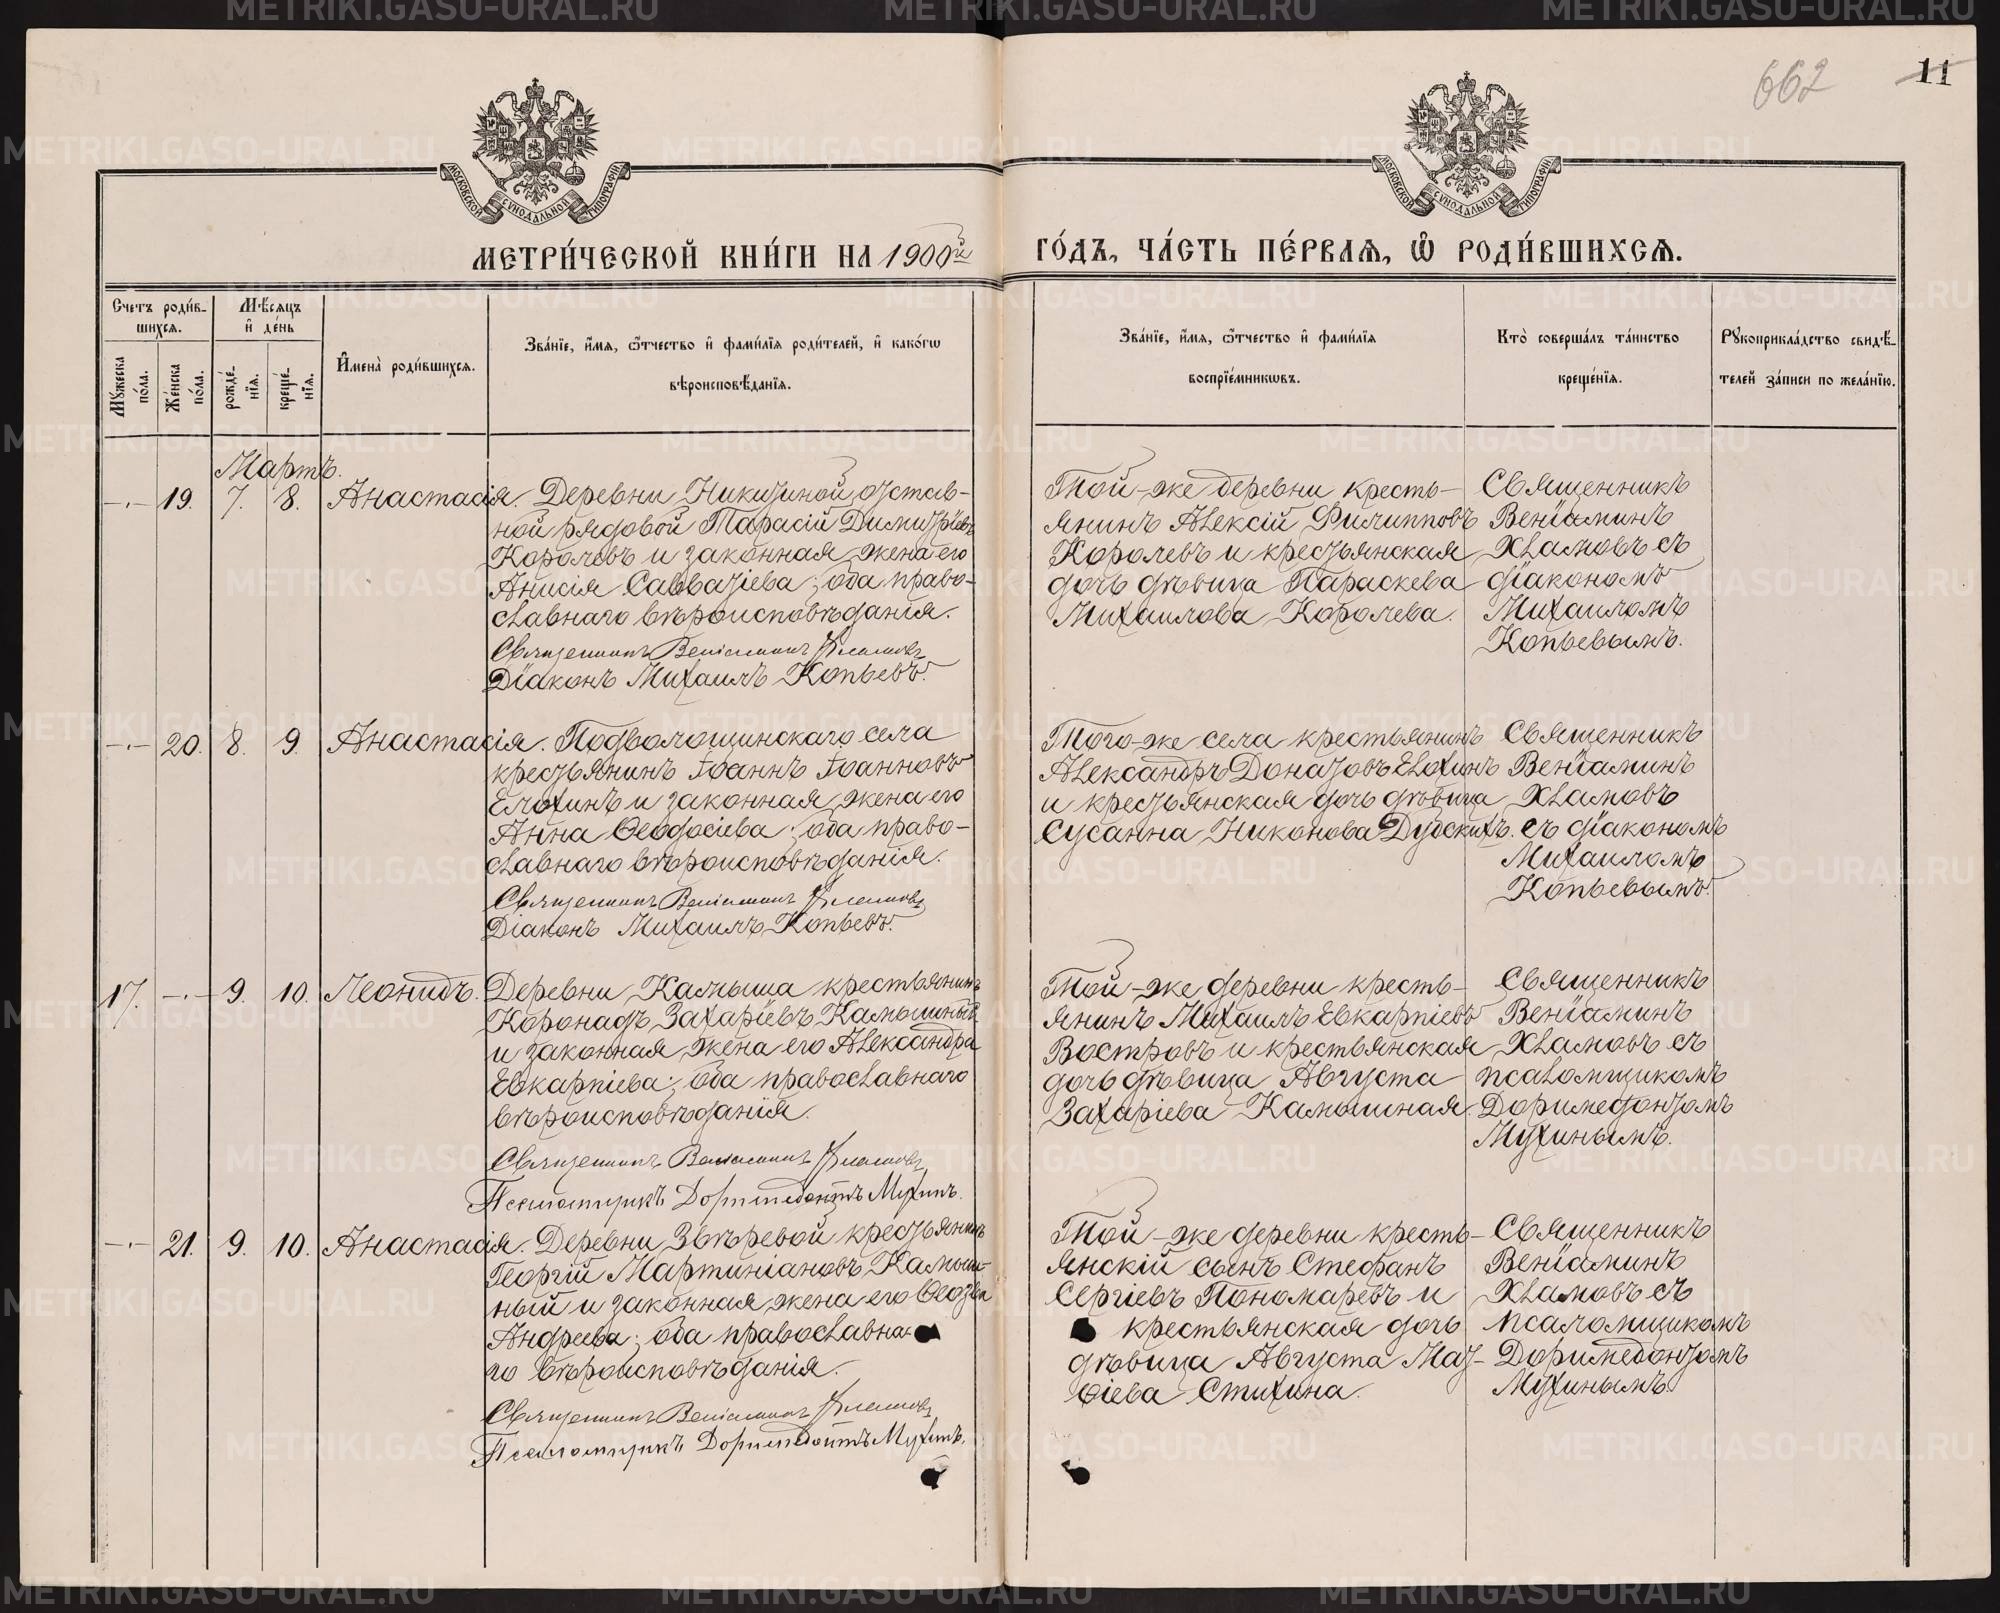 662
11
МОСКОВСКОЙ СѴНОДАЛЬНОЙ ТИПОГРАФІИ
МОСКОВСКОЙ СѴНОДАЛЬНОЙ ТИПОГРАФІИ
МЕТРИ́ЧЕСКОЙ КНИ́ГИ НА 1900й ГО́ДЪ, ЧА́СТЬ ПЕ́РВАѦ, Ѡ҆ РОДИ́ВШИХСѦ.
Счетъ роди́в-
шихсѧ.
Мѣ́сѧцъ
и҆ де́нь
Мꙋ́жеска
по́ла.
Же́нска
по́ла.
рожде́-
нїѧ.
креще́-
нїѧ.
И҆мена̀ роди́вшихсѧ.
Зва́нїе, и҆́мѧ, ѻ҆́тчество и҆ фами́лїѧ роди́телей, и҆ како́гѡ
вѣроисповѣ́данїѧ.
Зва́нїе, и҆́мѧ, ѻ҆́тчество и҆ фами́лїѧ
воспрїе́мникѡвъ.
Кто̀ соверша́лъ та́инство
креще́нїѧ.
Рꙋкоприкла́дство свидѣ́-
телей за́писи по жела́нїю.
Мартъ.
-·- 19. 7. 8. Анастасія. Деревни Никитиной отстав-
ной рядовой Тарасій Димитріевъ
Королевъ и законная жена его
Анисія Савватіева; оба право-
славнаго вѣроисповѣданія.
Священникъ Веніаминъ Хламовъ
Діаконъ Михаилъ Копьевъ.
Той-же деревни кресть-
янинъ Алексій Филипповъ
Королевъ и крестьянская
дочь дѣвица Параскева
Михаилова Королева.
Священникъ
Веніаминъ
Хламовъ съ
діакономъ
Михаиломъ
Копьевымъ.
-·- 20. 8. 9. Анастасія. Подволошинскаго села
крестьянинъ Іоаннъ Іоанновъ
Елохинъ и законная жена его
Анна Ѳеодосіева; оба право-
славнаго вѣроисповѣданія.
Священникъ Веніаминъ Хламовъ
Діаконъ Михаилъ Копьевъ.
Того-же села крестьянинъ
Александръ Донатовъ Елохинъ
и крестьянская дочь дѣвица
Сусанна Никонова Дубскихъ.
Священникъ
Веніаминъ
Хламовъ
съ діакономъ
Михаиломъ
Копьевымъ.
17. -·- 9. 10. Леонидъ. Деревни Камыша крестьянинъ
Коронатъ Захаріевъ Камышный
и законная жена его Александра
Евкарпіева; оба православнаго
вѣроисповѣданія.
Священникъ Веніаминъ Хламовъ
Псаломщикъ Доримедонтъ Мухинъ.
Той-же деревни кресть-
янинъ Михаилъ Евкарпіевъ
Востровъ и крестьянская
дочь дѣвица Августа
Захаріева Камышная.
Священникъ
Веніаминъ
Хламовъ съ
псаломщикомъ
Доримедонтомъ
Мухинымъ.
-·- 21. 9. 10. Анастасія. Деревни Звѣревой крестьянинъ
Георгій Мартиніановъ Камыш-
ный и законная жена его Ѳеозва
Андреева; оба православна-
го вѣроисповѣданія.
Священникъ Веніаминъ Хламовъ
Псаломщикъ Доримедонтъ Мухинъ.
Той-же деревни кресть-
янскій сынъ Стефанъ
Сергіевъ Пономаревъ и
крестьянская дочь
дѣвица Августа Мат-
ѳіева Стихина.
Священникъ
Веніаминъ
Хламовъ съ
псаломщикомъ
Доримедонтомъ
Мухинымъ.
METRIKI.GASO-URAL.RU